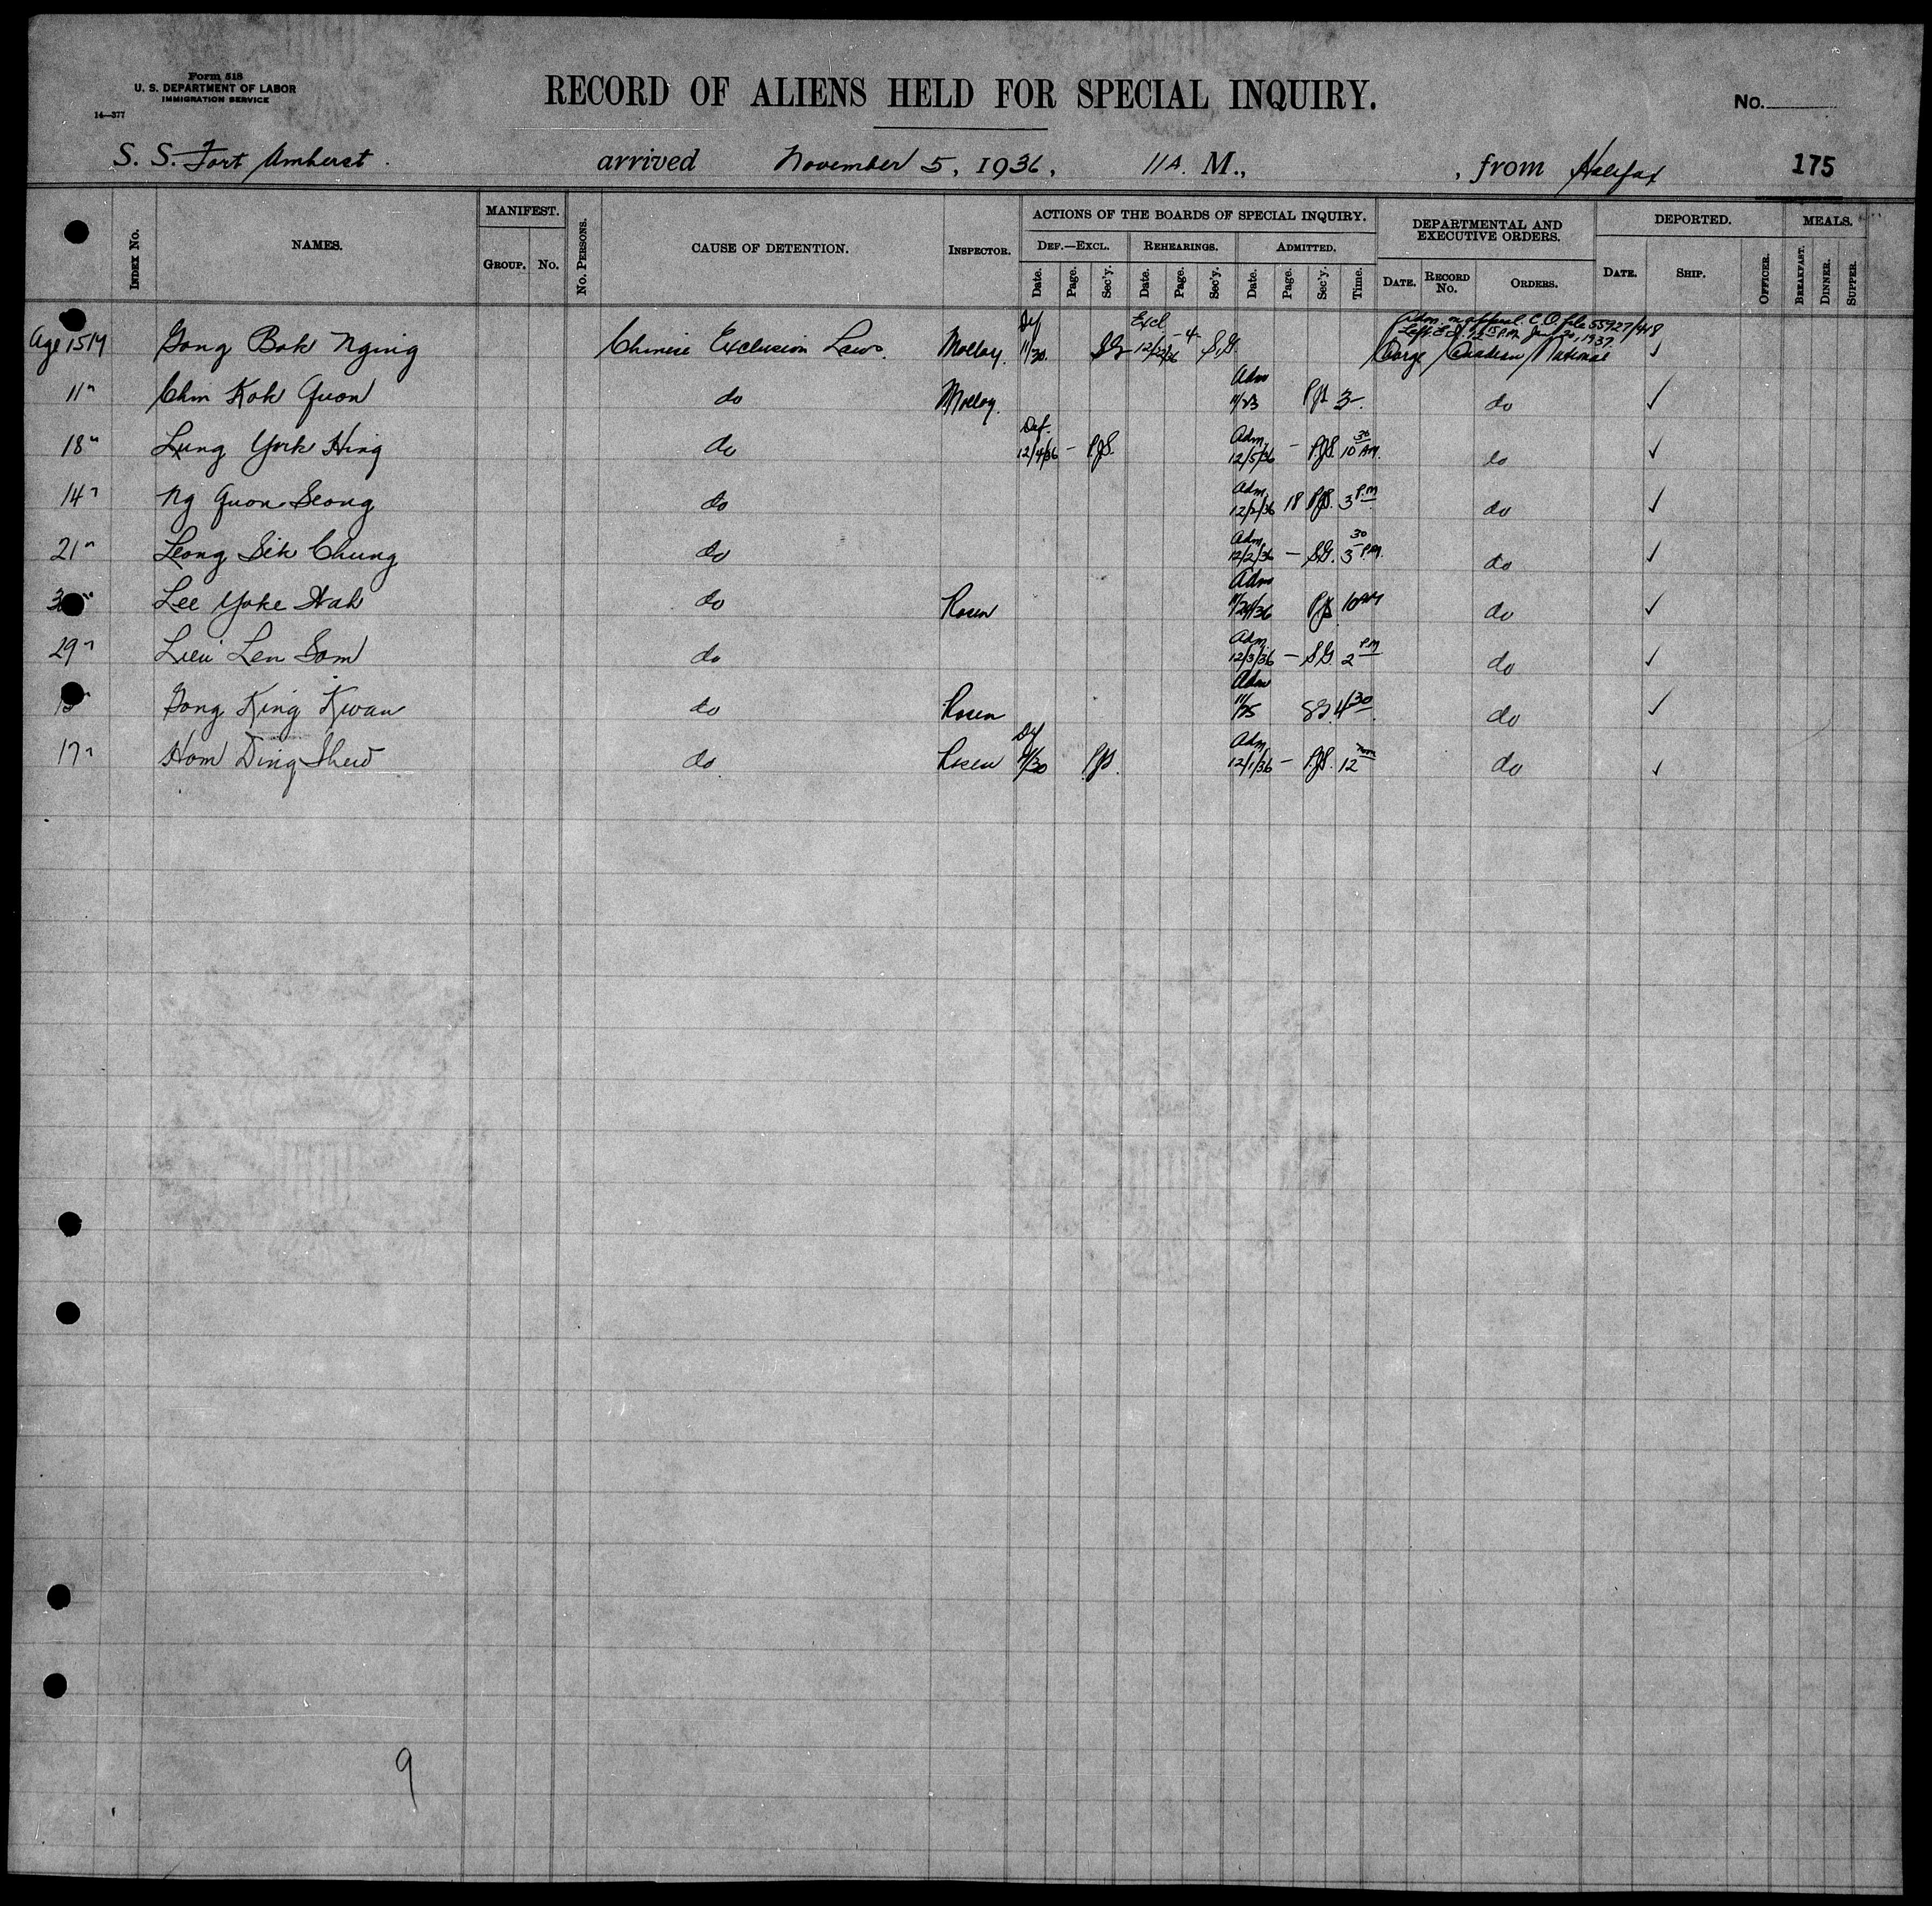 Form 518
U. S. DEPARTMENT OF LABOR
IMMIGRATION SERVICE
14—377
RECORD OF ALIENS HELD FOR SPECIAL INQUIRY.
No.
S. S. Fort Amherst. arrived November 5, 1936, 11 A. M., , from Halifax 175
INDEX No. NAMES. MANIFEST. GROUP. No. No. PERSONS. CAUSE OF DETENTION. INSPECTOR. ACTIONS OF THE BOARDS OF SPECIAL INQUIRY. DEPARTMENTAL AND EXECUTIVE ORDERS. DEPORTED. MEALS.
DEF.—EXCL. REHEARINGS. ADMITTED.
Date. Page. Sec'y. Date. Page. Sec'y. Date. Page. Sec'y. Time. DATE. RECORD No. ORDERS. DATE. SHIP. OFFICER. BREAKFAST. DINNER. SUPPER.
Adm. on appeal. C.O. file 55927/418
Left E.I. Jan 20, 1937.
Age 15 Gong Bok Nging Chinese Exclusion Laws. Molloy. Def 11/30. SG Excl 12/22/36 -4- S.G. Barge / Canadian / National ✓
11" Chin Kok Quon do Molloy. Adm 11/23 PJS 3-. do ✓
18" Lung York Hing do Def. 12/4/36 - PJS. Adm. 12/5/36 - PJS. 10 30 AM. do ✓
14" Ng Quon Seong do Adm. 12/2/36 18 PJS. 3 PM do ✓
21" Leong Sik Chung do Adm. 12/2/36 - S.G. 3 30 P.M. do ✓
Lee Yoke Hah do Rosen Adm PJS 10 AM do ✓
29" Lieu Len Som do Adm. 12/3/36 - S.G. 2 PM do ✓
Gong King Kwan do Rosen Adm 11/25 SG. 4 30 do ✓
17" Hom Ding Shew do Rosen Def 11/30 PJS. Adm. 12/1/36 - P.J.S. 12 noon do ✓
9